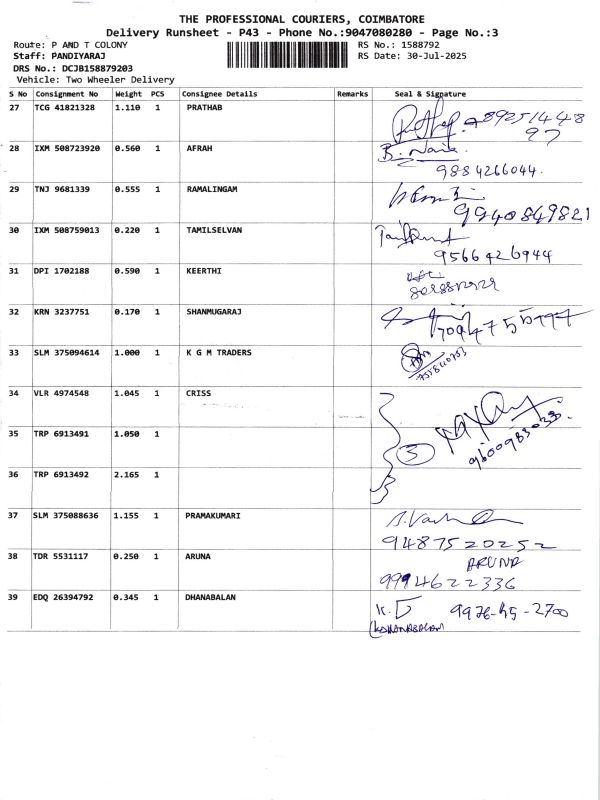 THE PROFESSIONAL COURIERS, COIMBATORE
Delivery Runsheet - P43 - Phone No.:9047080280 - Page No.:3
Route: P AND T COLONY RS No.: 1588792
Staff: PANDIYARAJ RS Date: 30-Jul-2025
DRS No.: DCJB158879203
Vehicle: Two Wheeler Delivery
S No Consignment No Weight PCS Consignee Details Remarks Seal & Signature
27 TCG 41821328 1.110 1 PRATHAB
97
28 IXM 508723920 0.560 1 AFRAH
9884266044.
29 TNJ 9681339 0.555 1 RAMALINGAM
9940849821
30 IXM 508759013 0.220 1 TAMILSELVAN
9566426944
31 DPI 1702188 0.590 1 KEERTHI
32 KRN 3237751 0.170 1 SHANMUGARAJ
33 SLM 375094614 1.000 1 K G M TRADERS
34 VLR 4974548 1.045 1 CRISS
35 TRP 6913491 1.050 1
3
36 TRP 6913492 2.165 1
37 SLM 375088636 1.155 1 PRAMAKUMARI
9487520252
38 TDR 5531117 0.250 1 ARUNA ARUNA
9994622336
39 EDQ 26394792 0.345 1 DHANABALAN